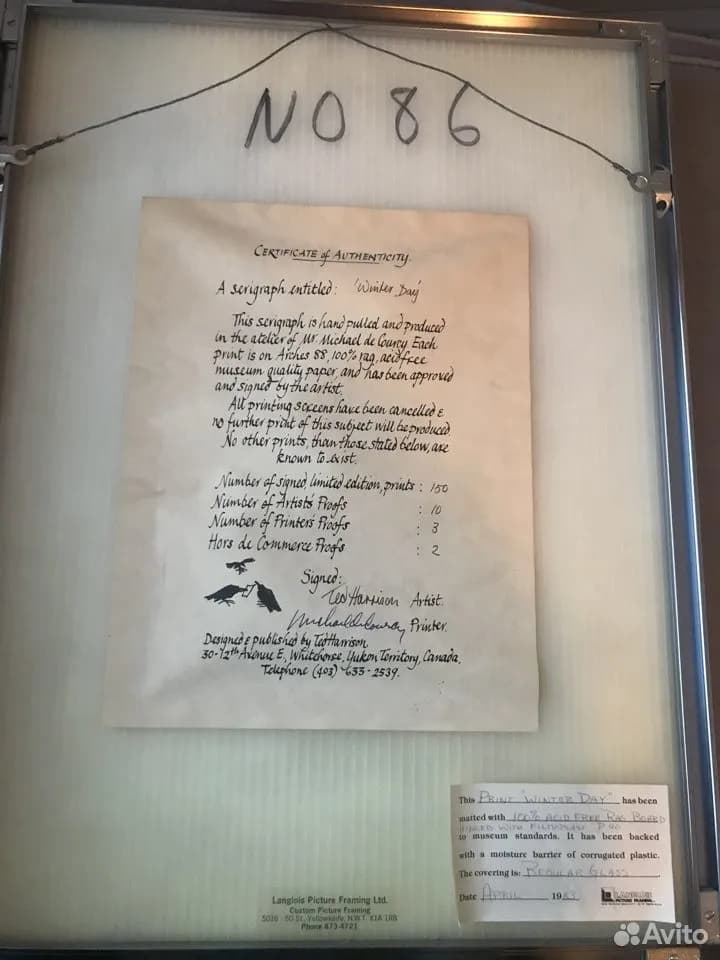 NO 86
CERTIFICATE of AUTHENTICITY.
A serigraph entitled: 'Winter Day'
This serigraph is hand pulled and produced
in the atelier of Mr. Michael de Courcy. Each
print is on Arches 88, 100% rag, acid free
museum quality paper, and has been approved
and signed by the artist.
All printing screens have been cancelled &
no further print of this subject will be produced.
No other prints, than those stated below, are
known to exist.
Number of signed, limited edition, prints : 150
Number of Artists' Proofs : 10
Number of Printers' Proofs : 3
Hors de Commerce Proofs : 2
Signed:
Ted Harrison Artist.
Michael de Courcy Printer.
Designed & published by Ted Harrison
30-12th Avenue E, Whitehorse, Yukon Territory, Canada.
Telephone (403) - 633 - 2539.
This PRINT "WINTER DAY" has been
matted with 100% ACID FREE RAG BOARD
HINGED WITH FILMOPLAST P 90
to museum standards. It has been backed
with a moisture barrier of corrugated plastic.
The covering is: REGULAR GLASS
Date APRIL 1983
LANGLOIS
PICTURE FRAMING
Langlois Picture Framing Ltd.
Custom Picture Framing
5016 - 50 St. Yellowknife, N.W.T. X1A 1R8
Phone 873-4721
Avito